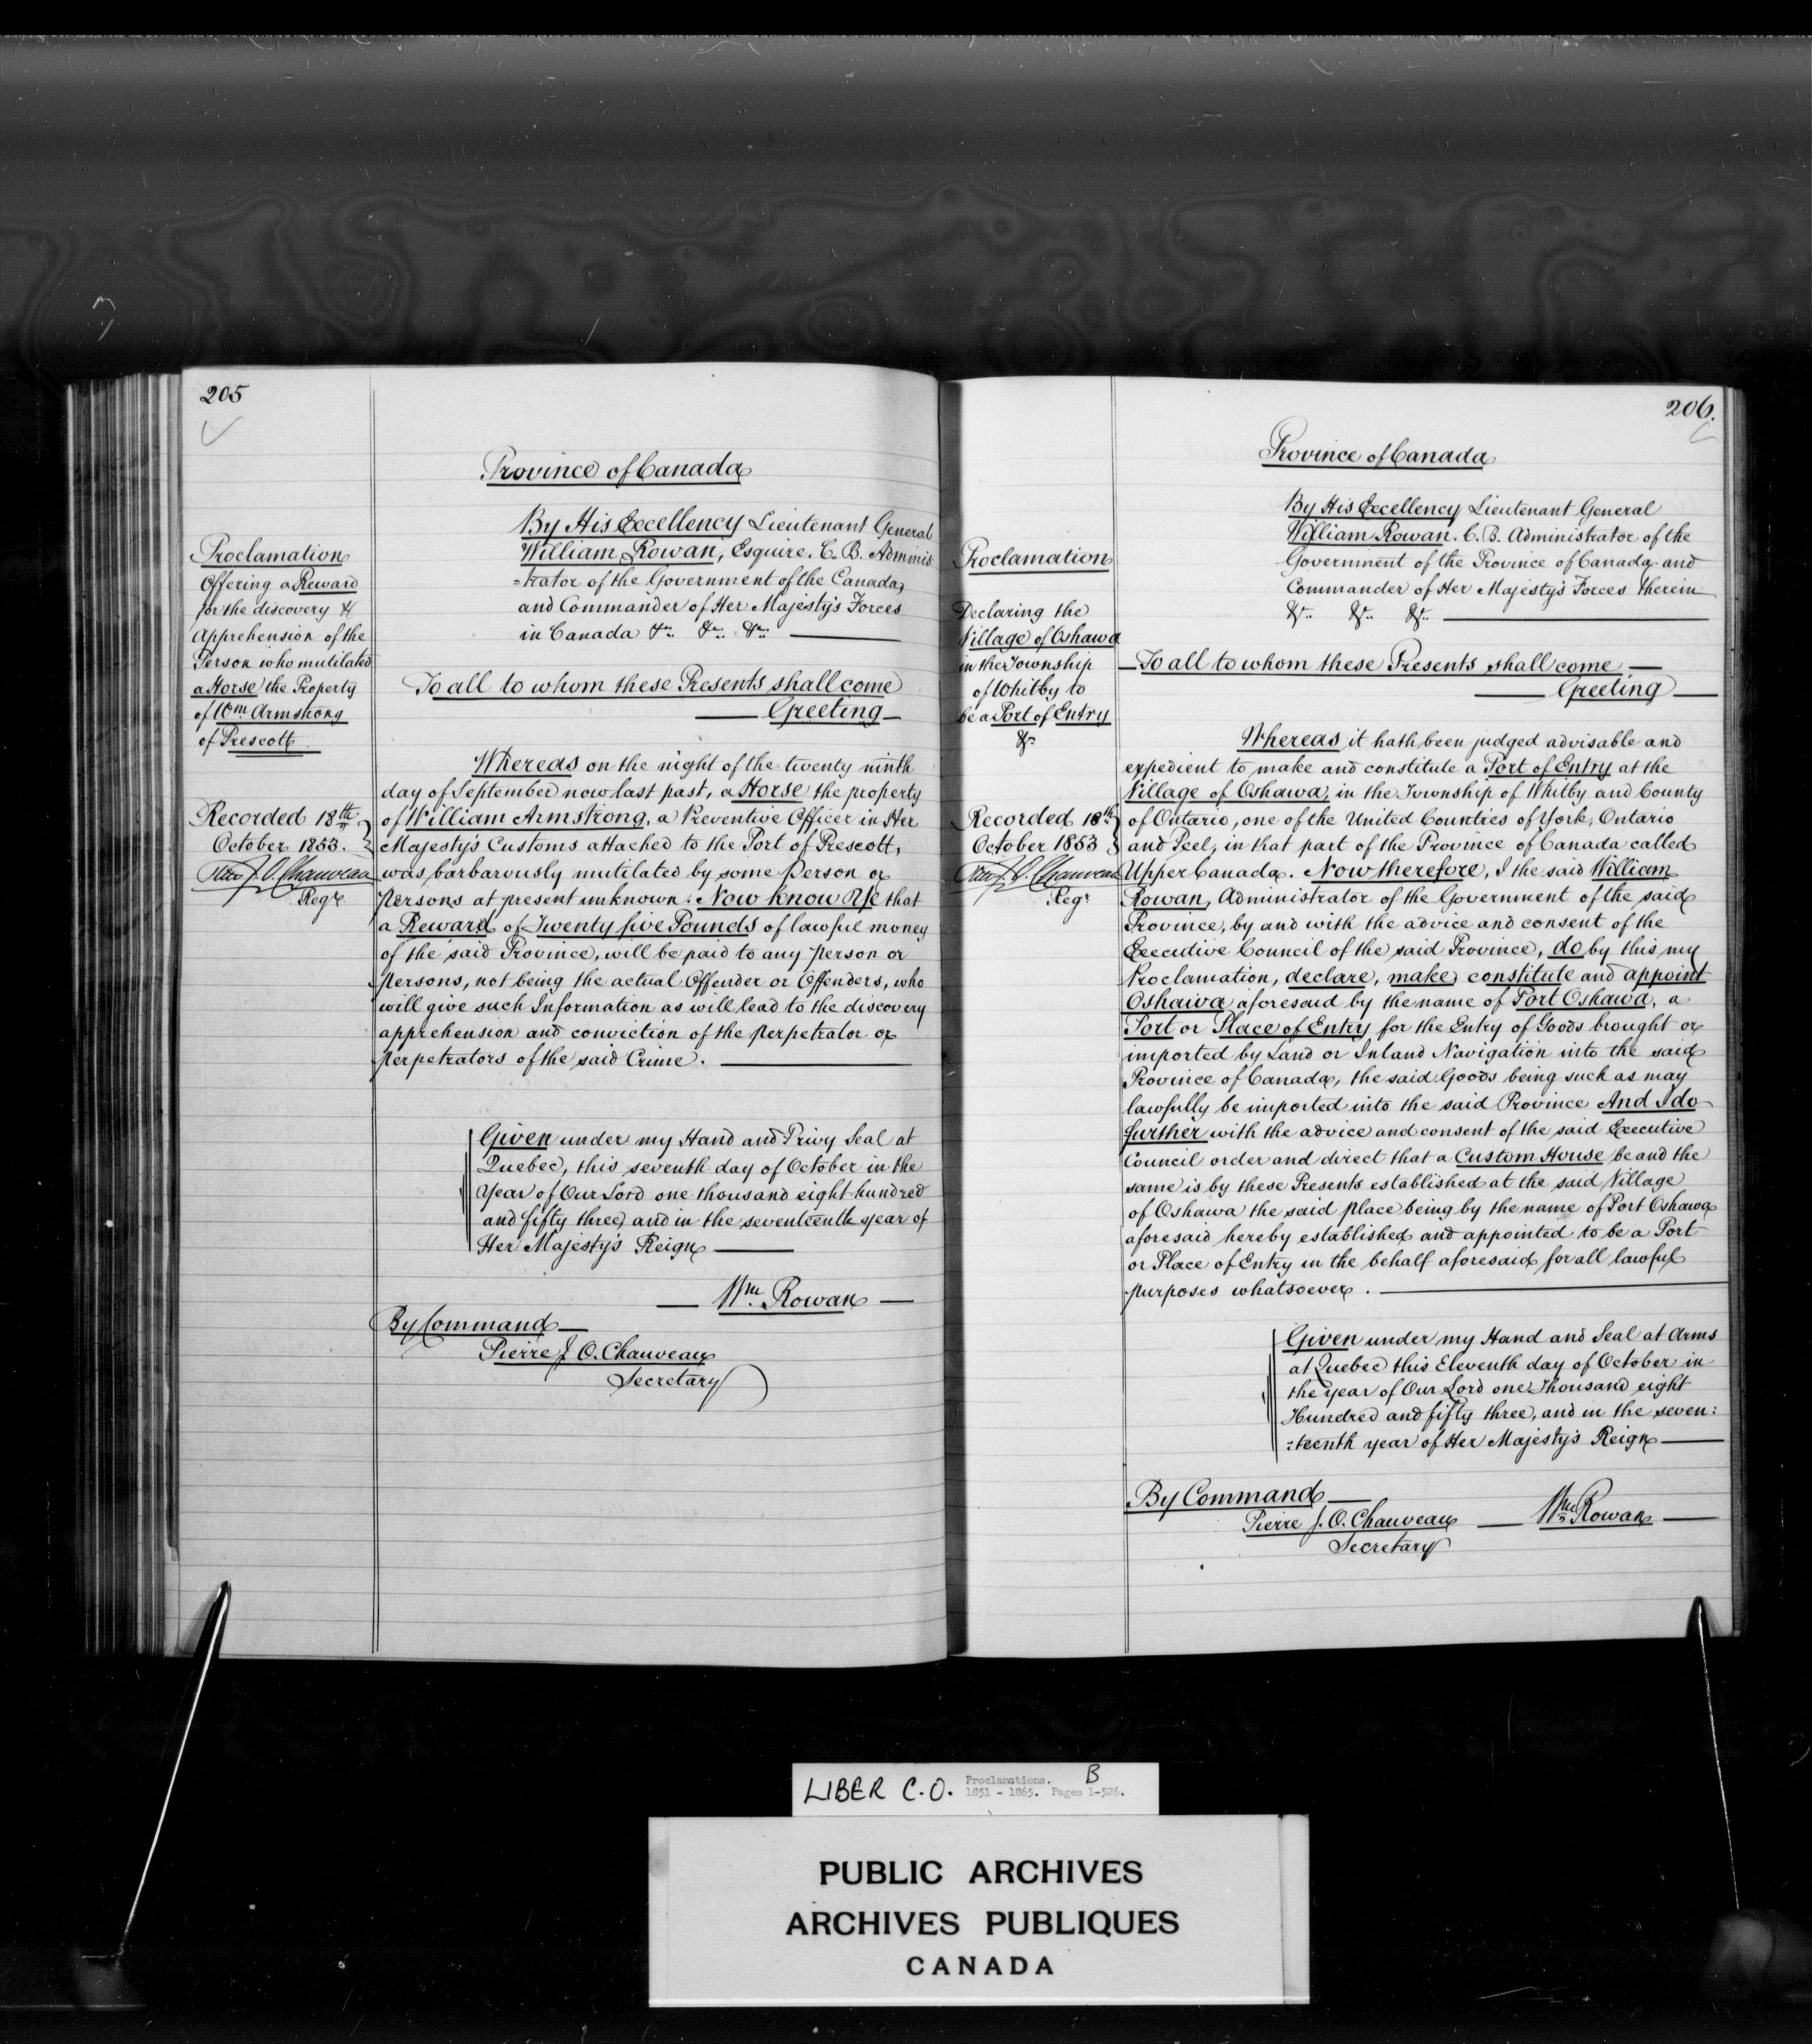 205
Province of Canada
By His Excellency Lieutenant General
William Rowan, Esquire. C. B. Adminis
=trator of the Government of the Canada,
and Commander of Her Majesty's Forces
in Canada &c. &c. &c.
Proclamation
Offering a Reward
for the discovery &
Apprehension of the
Person who mutilated
a Horse the Property
of Wm Armstrong
of Prescott
To all to whom these Presents shall come
Greeting
Whereas on the night of the twenty ninth
day of September now last past, a Horse the property
of William Armstrong, a Preventive Officer in Her
Majesty's Customs attached to the Port of Prescott,
was barbarously mutilated by some Person or
Persons at present unknown. Now know Ye that
a Reward of Twenty five Pounds of lawful money
of the said Province, will be paid to any person or
persons, not being the actual Offender or Offenders, who
will give such Information as will lead to the discovery
apprehension and conviction of the perpetrator or
perpetrators of the said Crime.
Recorded 18th
October 1853.
Pierre J. O. Chauveau
Regr
Given under my Hand and Privy Seal at
Quebec, this seventh day of October in the
Year of Our Lord one thousand eight hundred
and fifty three, and in the seventeenth year of
Her Majesty's Reign
Wm Rowan
By Command
Pierre J. O. Chauveau
Secretary
206.
Province of Canada
By His Excellency Lieutenant General
William Rowan. C. B. Administrator of the
Government of the Province of Canada and
Commander of Her Majesty's Forces therein
&c. &c. &c.
Proclamation
Declaring the
Village of Oshawa
in the Township
of Whitby to
be a Port of Entry
&c
To all to whom these Presents shall come
Greeting
Whereas it hath been judged advisable and
expedient to make and constitute a Port of Entry at the
Village of Oshawa, in the Township of Whitby and County
of Ontario, one of the United Countries of York, Ontario
and Peel, in that part of the Province of Canada called
Upper Canada. Now therefore, I the said William
Rowan, Administrator of the Government of the said
Province, by and with the advice and consent of the
Executive Council of the said Province, do by this my
Proclamation, declare, make, constitute and appoint
Oshawa aforesaid by the name of Port Oshawa, a
Port or Place of Entry for the Entry of Goods brought or
imported by Land or Inland Navigation into the said
Province of Canada, the said Goods being such as may
lawfully be imported into the said Province And I do
further with the advice and consent of the said Executive
Council order and direct that a Custom House be and the
same is by these Presents established at the said Village
of Oshawa the said place being by the name of Port Oshawa
aforesaid hereby established and appointed to be a Port
or Place of Entry in the behalf aforesaid for all lawful
purposes whatsoever.
Recorded 18th
October 1853
Pierre J. O. Chauveau
Regr
Given under my Hand and Seal at Arms
at Quebec this Eleventh day of October in
the year of Our Lord one Thousand eight
Hundred and fifty three, and in the seven:
:teenth year of Her Majesty's Reign
By Command
Pierre J. O. Chauveau Wm Rowan
Secretary
LIBER C.O. Proclamations. B
1851 - 1865. Pages 1-526.
PUBLIC ARCHIVES
ARCHIVES PUBLIQUES
CANADA